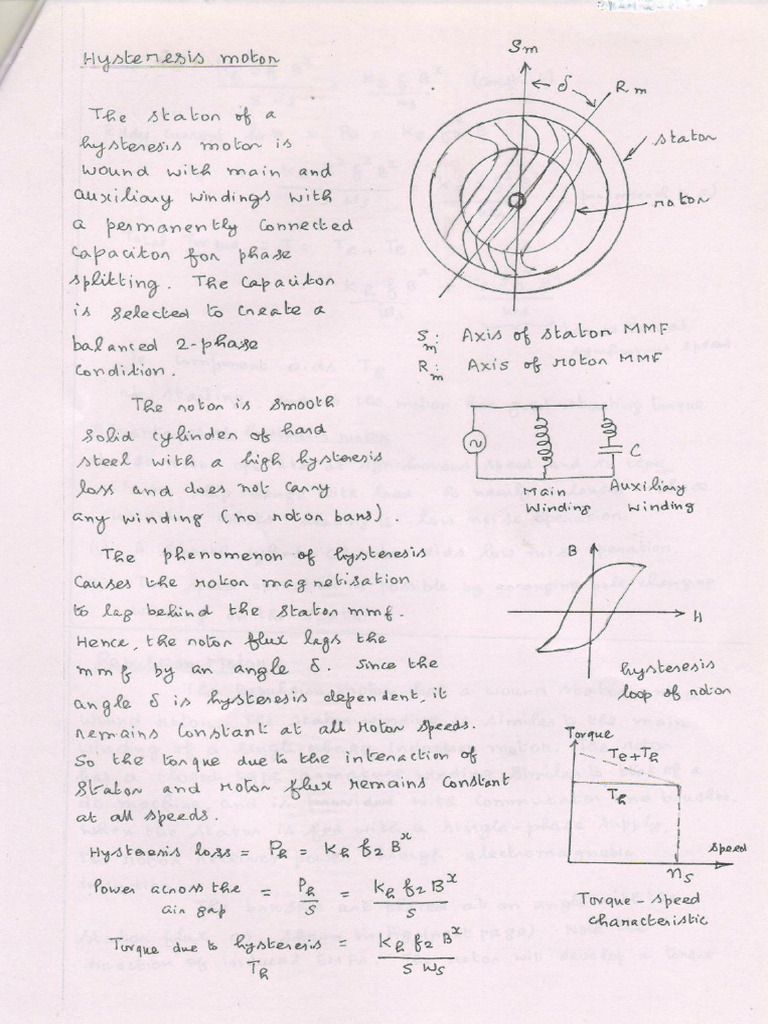 Hysteresis motor
The stator of a
hysteresis motor is
wound with main and
auxiliary windings with
a permanently connected
capacitor for phase
splitting. The capacitor
is selected to create a
balanced 2-phase
condition.
Sm
δ
Rm
stator
rotor
Sm: Axis of stator MMF
Rm: Axis of rotor MMF
The rotor is smooth
solid cylinder of hard
steel with a high hysteresis
loss and does not carry
any winding (no rotor bars).
C
Main
Winding
Auxiliary
winding
The phenomenon of hysteresis
causes the rotor magnetisation
to lag behind the stator mmf.
Hence, the rotor flux lags the
mmf by an angle δ. Since the
angle δ is hysteresis dependent, it
remains constant at all rotor speeds.
So the torque due to the interaction of
stator and rotor flux remains constant
at all speeds.
B
H
hysteresis
loop of rotor
Torque
Te+Th
Th
speed
ns
Torque-speed
characteristic
Hysteresis loss = Ph = Kh f2 B^x
Power across the air gap = Ph/S = Kh f2 B^x / S
Torque due to hysteresis Th = Kh f2 B^x / S ws